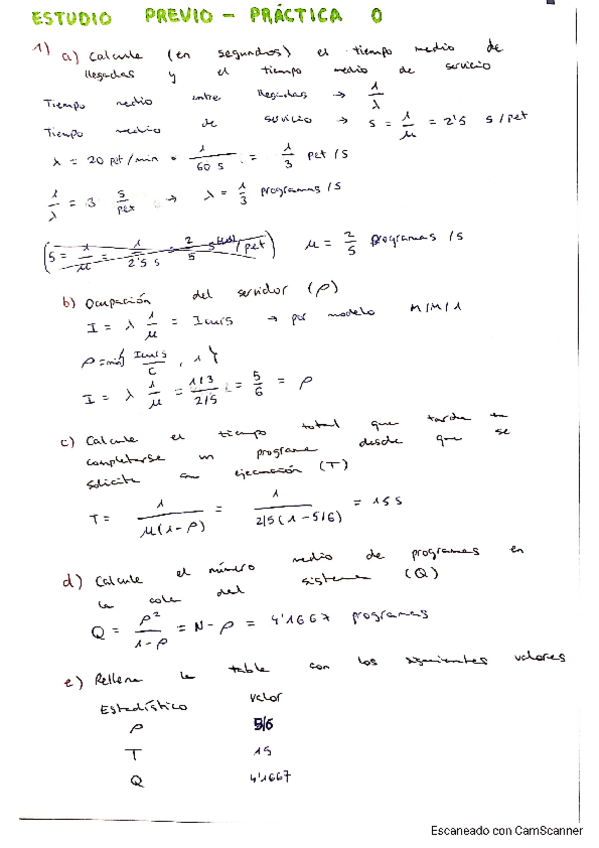 ESTUDIO PREVIO - PRÁCTICA 0
1) a) Calcule (en segundos) el tiempo medio de
llegadas y el tiempo medio de servicio
Tiempo medio entre llegadas → 1/λ
Tiempo medio de servicio → s = 1/μ = 2'5 s/pet
λ = 20 pet/min · 1/60 s = 1/3 pet/s
1/λ = 3 s/pet → λ = 1/3 programas/s
μ = 2/5 programas/s
b) Ocupación del servidor (ρ)
I = λ 1/μ = → por modelo M/M/1
I = λ 1/μ = 1/3 / 2/5 = 5/6 = ρ
c) Calcule el tiempo total que tarda en
completarse un programa desde que se
solicite su ejecución (T)
T = 1/μ(1-ρ) = 1/2/5(1-5/6) = 15 s
d) Calcule el número medio de programas en
la cola del sistema (Q)
Q = ρ²/1-ρ = N-ρ = 4'1667 programas
e) Rellene la tabla con los siguientes valores
Estadístico Valor
ρ 5/6
T 15
Q 4'1667
Escaneado con CamScanner